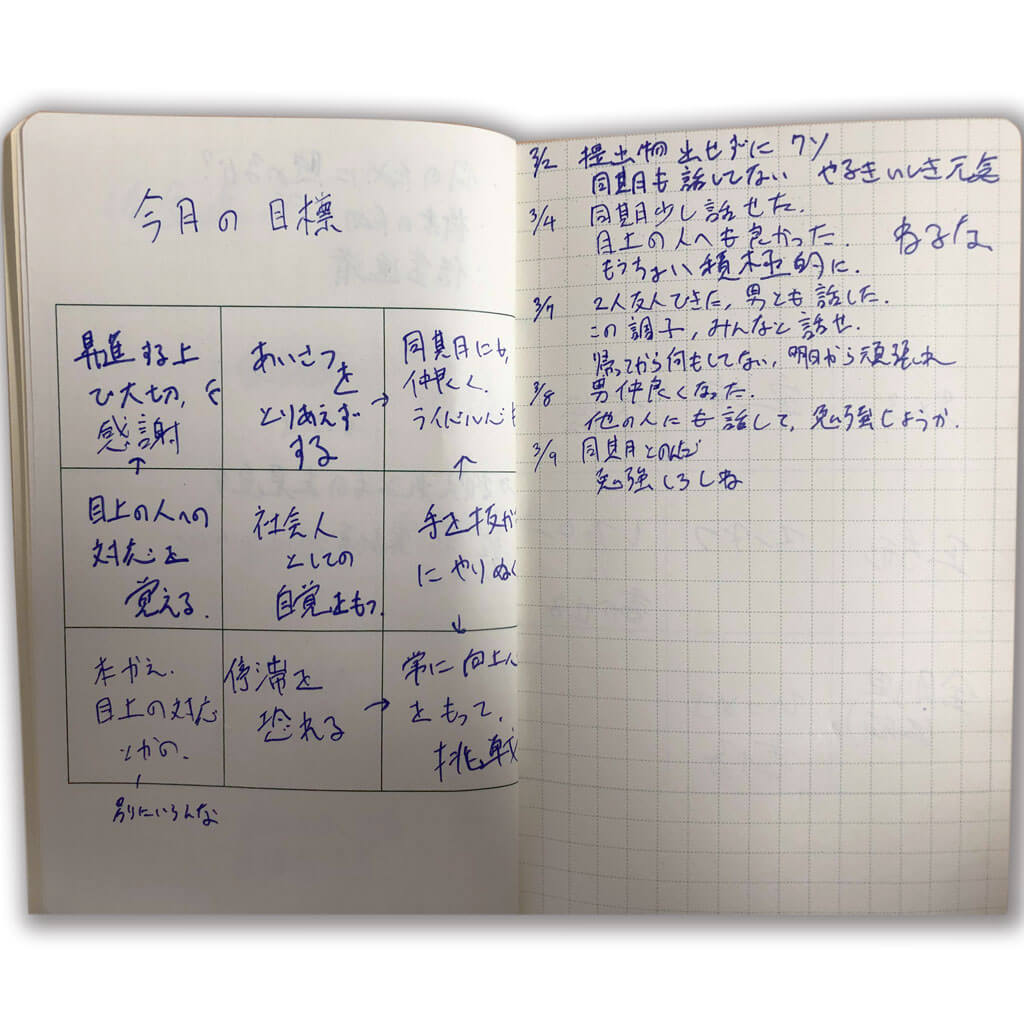 今月の目標
昇進する上
で大切,
感謝
↑
あいさつを
とりあえず
する
→
同期にも,
仲良く.
ライバル
↑
目上の人への
対応を
覚える.
社会人
としての
自覚をもつ
手を抜か
にやりぬく
↓
本かえ.
目上の対応
とかの.
別にいろんな
停滞を
恐れる
→
常に向上心
をもって,
挑戦
3/2 提出物出せずにクソ
同期も話してない やるきいしき元気
3/4 同期少し話せた.
目上の人へも良かった.
もうちょい積極的に.
ねるな
3/7 2人友人できた,男とも話した.
この調子,みんなと話せ.
帰ってから何もしてない,明日から頑張れ
3/8 男仲良くなった.
他の人にも話して,勉強しようか.
3/9 同期とのんだ
勉強しろしね